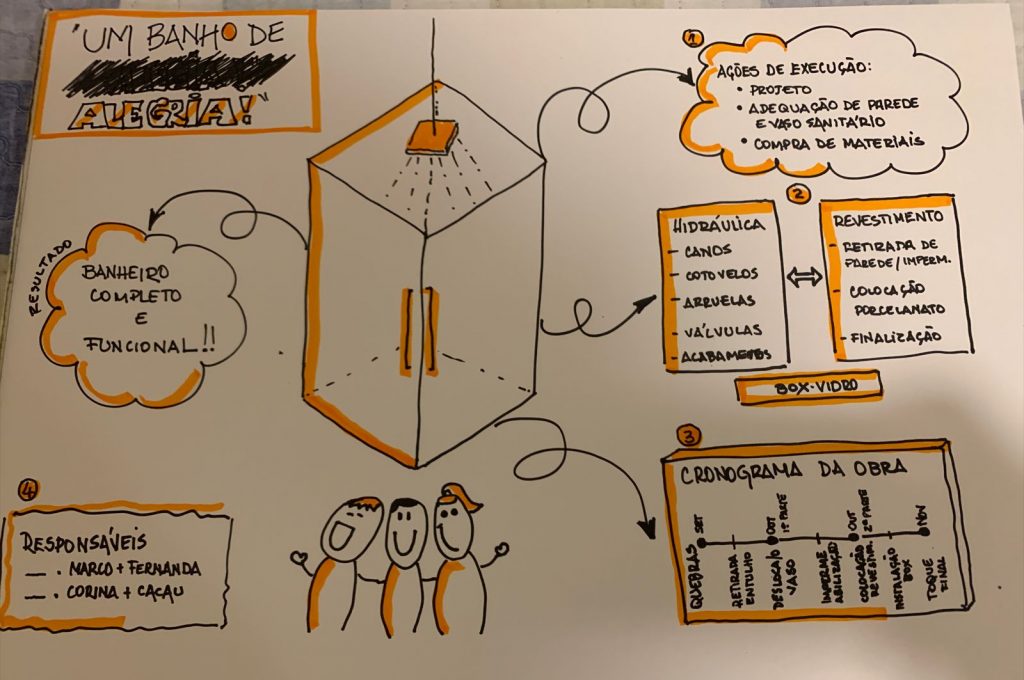 "UM BANHO DE
ALEGRIA!"
1
AÇÕES DE EXECUÇÃO:
• PROJETO
• ADEQUAÇÃO DE PAREDE
E VASO SANITÁRIO
• COMPRA DE MATERIAIS
2
HIDRÁULICA
- CANOS
- COTOVELOS
- ARRUELAS
- VÁLVULAS
- ACABAMETOS
REVESTIMENTO
- RETIRADA DE
PAREDE/IMPERM.
- COLOCAÇÃO
PORCELANATO
- FINALIZAÇÃO
BOX-VIDRO
RESULTADO
BANHEIRO
COMPLETO
E
FUNCIONAL!!
3
CRONOGRAMA DA OBRA
SET
OUT
1ª PARTE
OUT
2ª PARTE
NOV
QUEBRAS
RETIRADA
ENTULHO
DESLOCA/O
VASO
IMPERME
ABILIZAÇÃO
COLOCAÇÃO
REVESTIM.
INSTALAÇÃO
BOX
TOQUE
FINAL
4
RESPONSÁVEIS
— . MARCO + FERNANDA
— . CORINA + CACAU